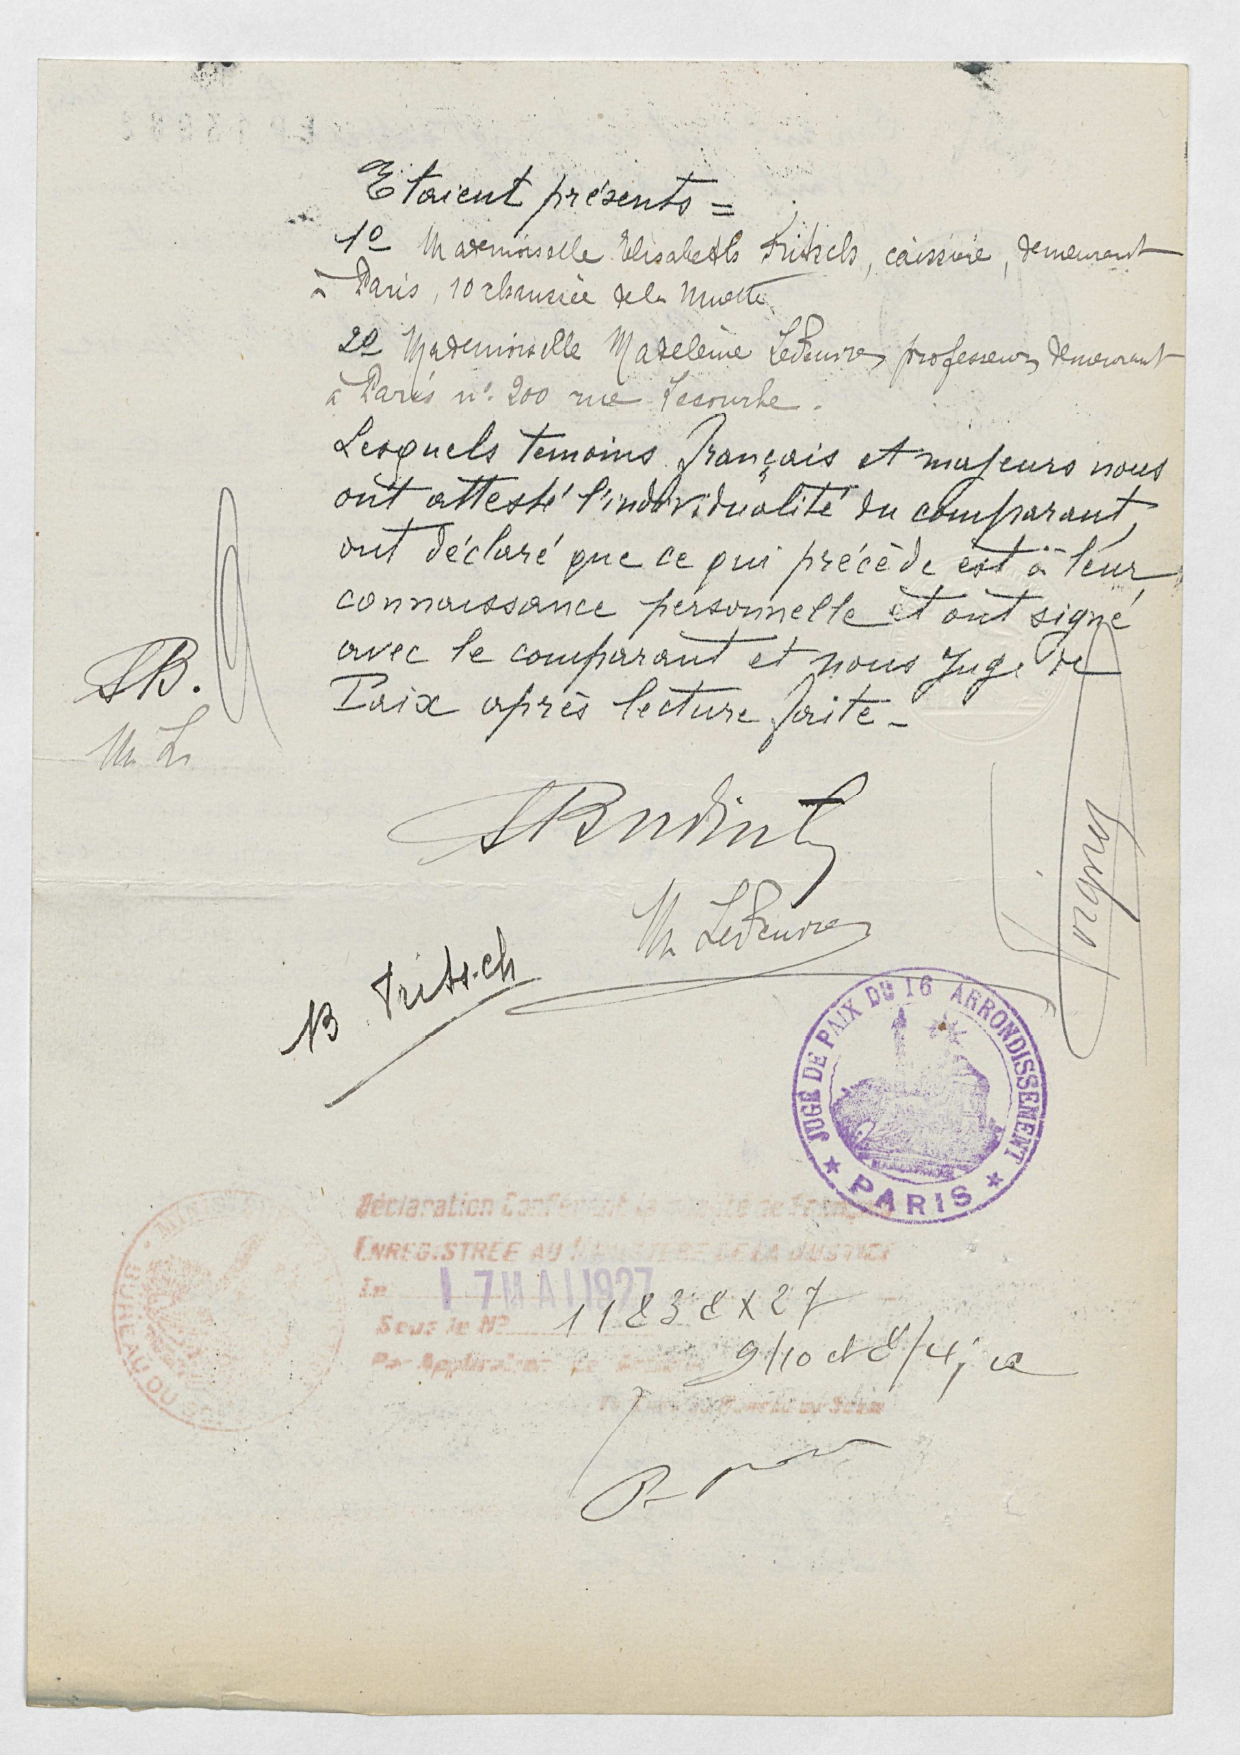 Etaient présents =
1º Mademoiselle Elisabeth Fritsch, caissière, demeurant
à Paris, 10 chaussée de la Muette.
2º Mademoiselle Madeleine LeFeuvre, professeur, demeurant
à Paris nº. 200 rue Lecourbe.
Lesquels temoins français et majeurs nous
ont attesté l'individualité du comparant,
ont déclaré que ce qui précède est à leur
connaissance personnelle et ont signé
avec le comparant et nous Juge de
Paix après lecture faite_
SB.
M. L.
SBudint
M LeFeuvre
Fritsch
JUGE DE PAIX DU 16 ARRONDISSEMENT
PARIS
Déclaration Conférant la qualité de Français
ENREGISTRÉE AU MINISTÈRE DE LA JUSTICE
le 17 MAI 1927
Sous le Nº 11838 X 27
Par Application de
9/10 et
BUREAU DU